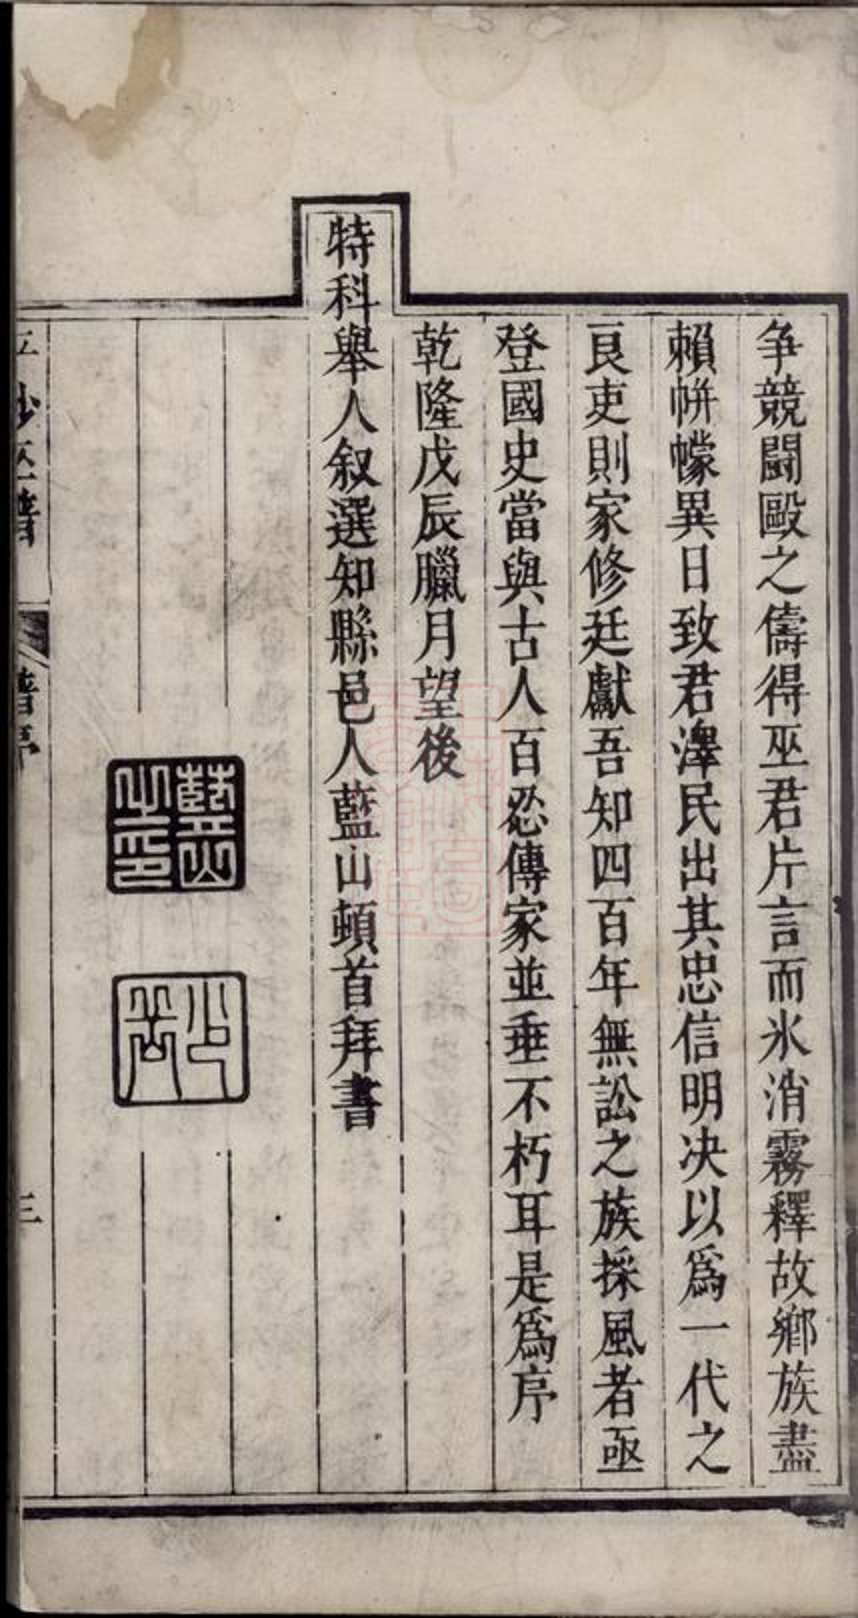 争競鬪毆之儔得巫君片言而氷消霧釋故鄉族盡
賴帡幪異日致君澤民出其忠信明决以爲一代之
良吏則家修廷獻吾知四百年無訟之族採風者亟
登國史當與古人百忍傳家並垂不朽耳是爲序
乾隆戊辰臘月望後
特科舉人叙選知縣邑人藍山頓首拜書
藍山之印
譜序
三